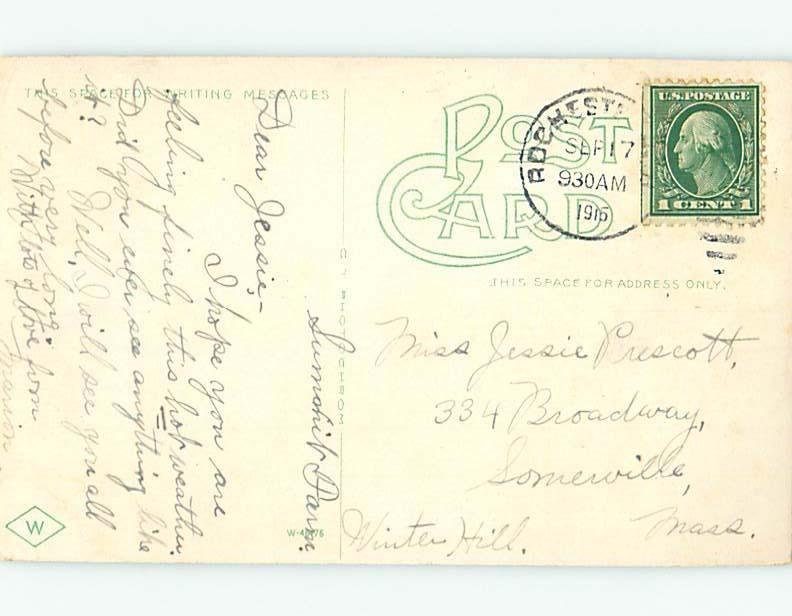 THIS SPACE FOR WRITING MESSAGES
Summit Farm.
Dear Jessie,-
I hope you are
feeling finely this hot weather.
Did you ever see anything like
it? Well, I will see you all
before very long.
With lots of love from
Marion
POST
CARD
ROCHESTE
SEP 17
930AM
1915
U.S. POSTAGE
1 CENT 1
THIS SPACE FOR ADDRESS ONLY.
Miss Jessie Prescott,
334 Broadway,
Somerville,
Winter Hill. Mass.
C T PHOTOCHROM
W